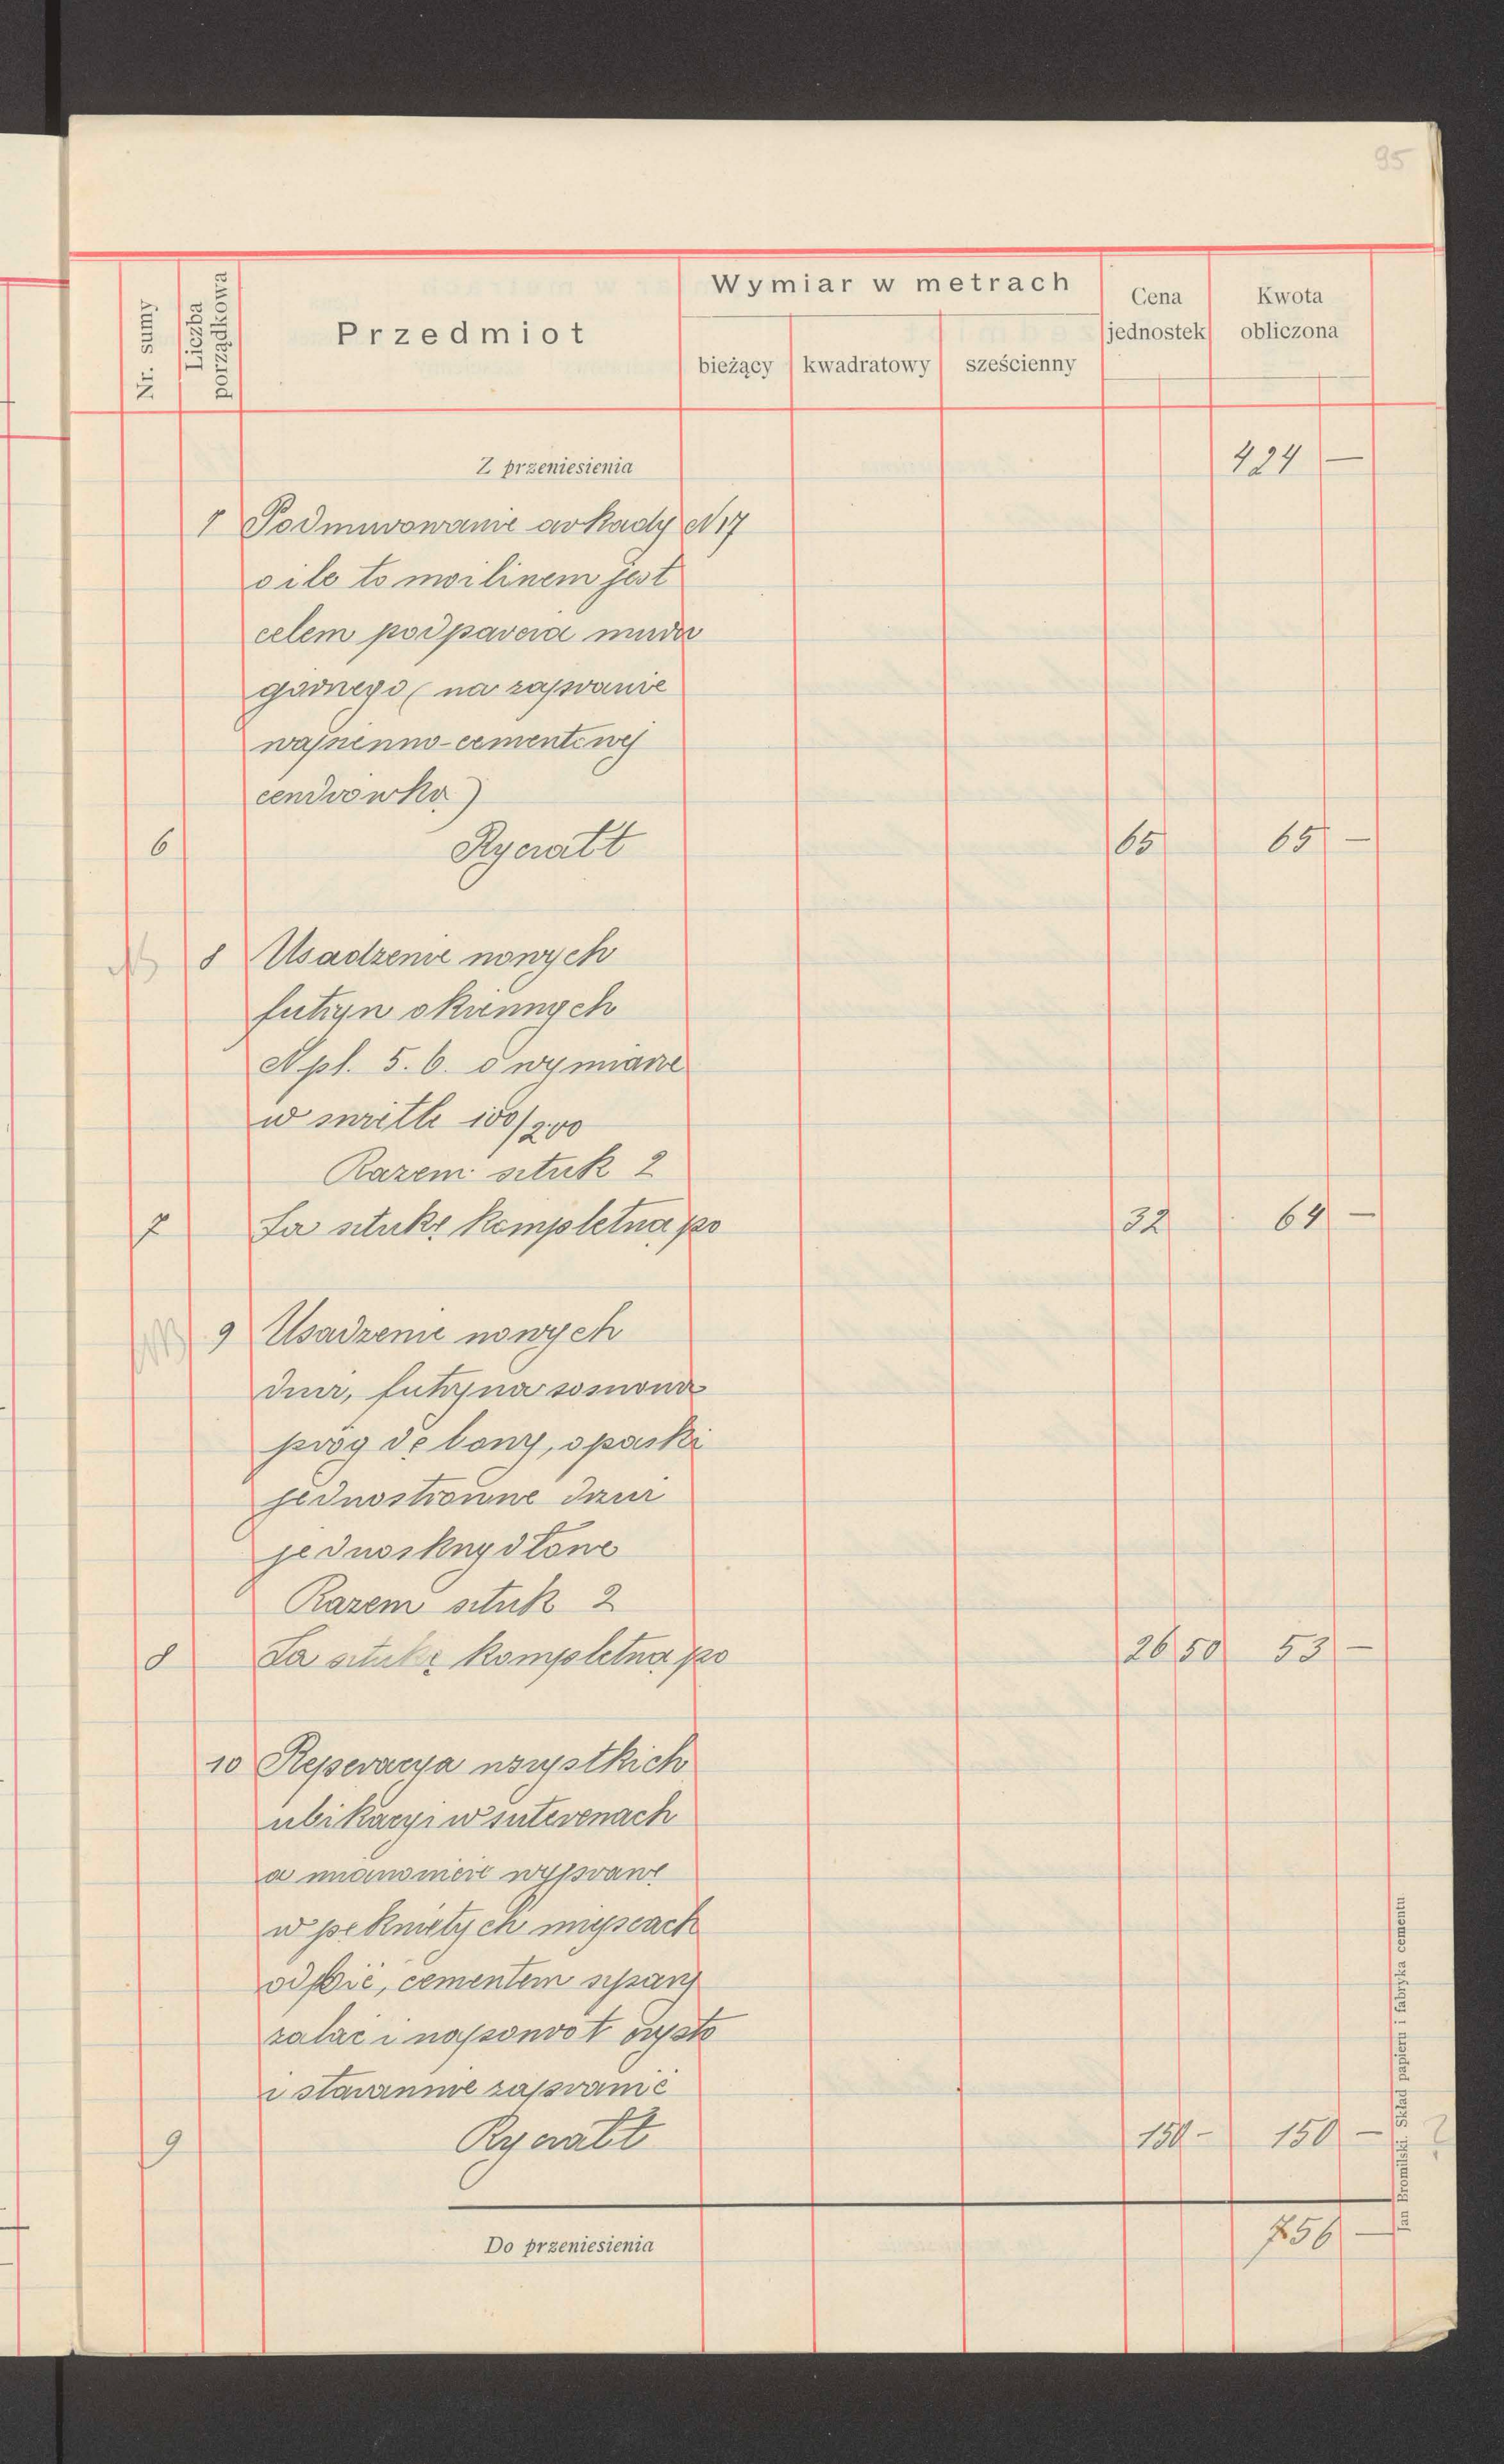 95
Nr. sumy
Liczba porządkowa
Przedmiot
Wymiar w metrach
bieżący kwadratowy sześcienny
Cena jednostek
Kwota obliczona
Z przeniesienia 424 —
7 Podmurowanie arkady N 17
o ile to możlinem jest
celem podparcia muru
górnego (na zaprawie
wapienno-cementowej
cendrówka)
6 Ryczałt 65 65 —
8 Usadzenie nowych
futryn okiennych
N pl. 5. 6. o wymiarze
w świetle 100/200
Razem sztuk 2
7 Za sztukę kompletną po 32 64 —
9 Usadzenie nowych
drzwi, futryna sosnowa
próg dębowy, opaski
jednostronne drzwi
jednoskrzydłowe
Razem sztuk 2
8 Za sztukę kompletną po 26 50 53 —
10 Reperacya wszystkich
ubikacyi w suterenach
a mianowicie wyprawę
w pękniętych miejscach
odbić, cementem szpary
zalać i napowrót czysto
i starannie zaprawić
9 Ryczałt 150 - 150 —
Do przeniesienia 756 —
Jan Bromilski. Skład papieru i fabryka cementu